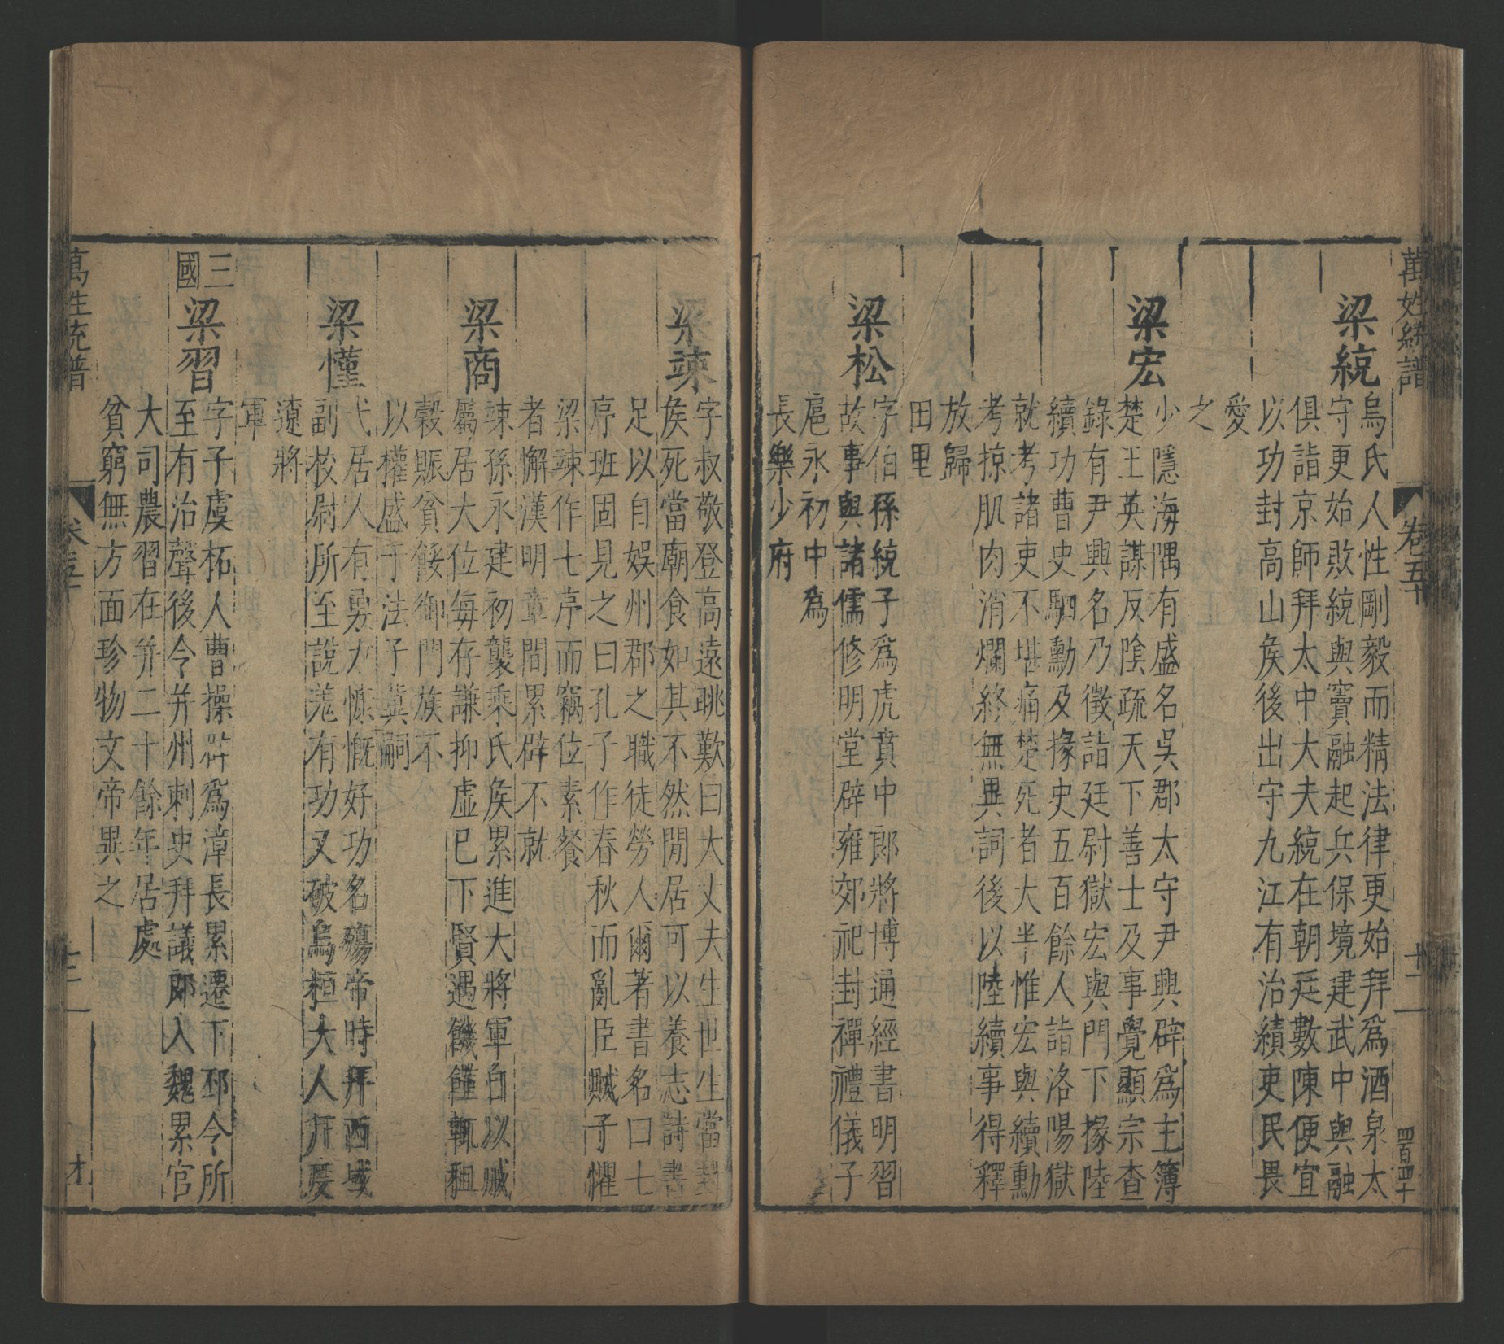 萬姓統譜
卷五十
十二
四百四十
梁統
烏氏人性剛毅而精法律更始拜爲酒泉太
守更始敗統與竇融起兵保境建武中與融
俱詣京師拜太中大夫統在朝廷數陳便宜
以功封高山侯後出守九江有治績吏民畏
愛
之
梁宏
少隱海隅有盛名吳郡太守尹興辟爲主簿
楚王英謀反陰疏天下善士及事覺顯宗查
錄有尹興名乃徵詣廷尉獄宏與門下掾陸
續功曹史駟勳及掾史五百餘人詣洛陽獄
就考諸吏不堪痛楚死者大半惟宏與續勳
考掠肌肉消爛終無異詞後以陸續事得釋
放歸
田里
梁松
字伯孫統子爲虎賁中郎將博通經書明習
故事與諸儒修明堂辟雍郊祀封禪禮儀子
扈永初中爲
長樂少府
梁竦
字叔敬登高遠眺歎曰大丈夫生世生當封
侯死當廟食如其不然閒居可以養志詩書
足以自娛州郡之職徒勞人爾著書名曰七
序班固見之曰孔子作春秋而亂臣賊子懼
梁竦作七序而竊位素餐
者懈漢明章間累辟不就
梁商
竦孫永建初襲乘氏侯累進大將軍自以戚
屬居大位每存謙抑虛已下賢遇饑饉輒租
穀賑貧餒御門族不
以權盛干法子冀嗣
梁慬
弋居人有勇力慷慨好功名殤帝時拜西域
副校尉所至說羌有功又破烏桓大人
遼將
軍
三國
梁習
字子虞柘人曹操辟爲漳長累遷下邳令所
至有治聲後令并州刺史拜議郎入魏累官
大司農習在并二十餘年居處
貧窮無方面珍物文帝異之
萬姓統譜
十二